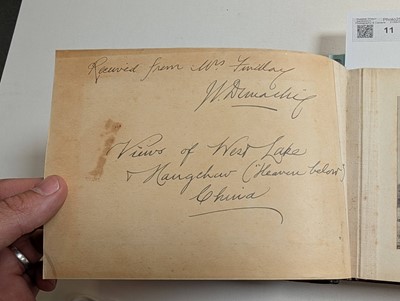 Received from Mrs Findlay
Views of West Lake
& Hangchow ("Heaven below")
China
11